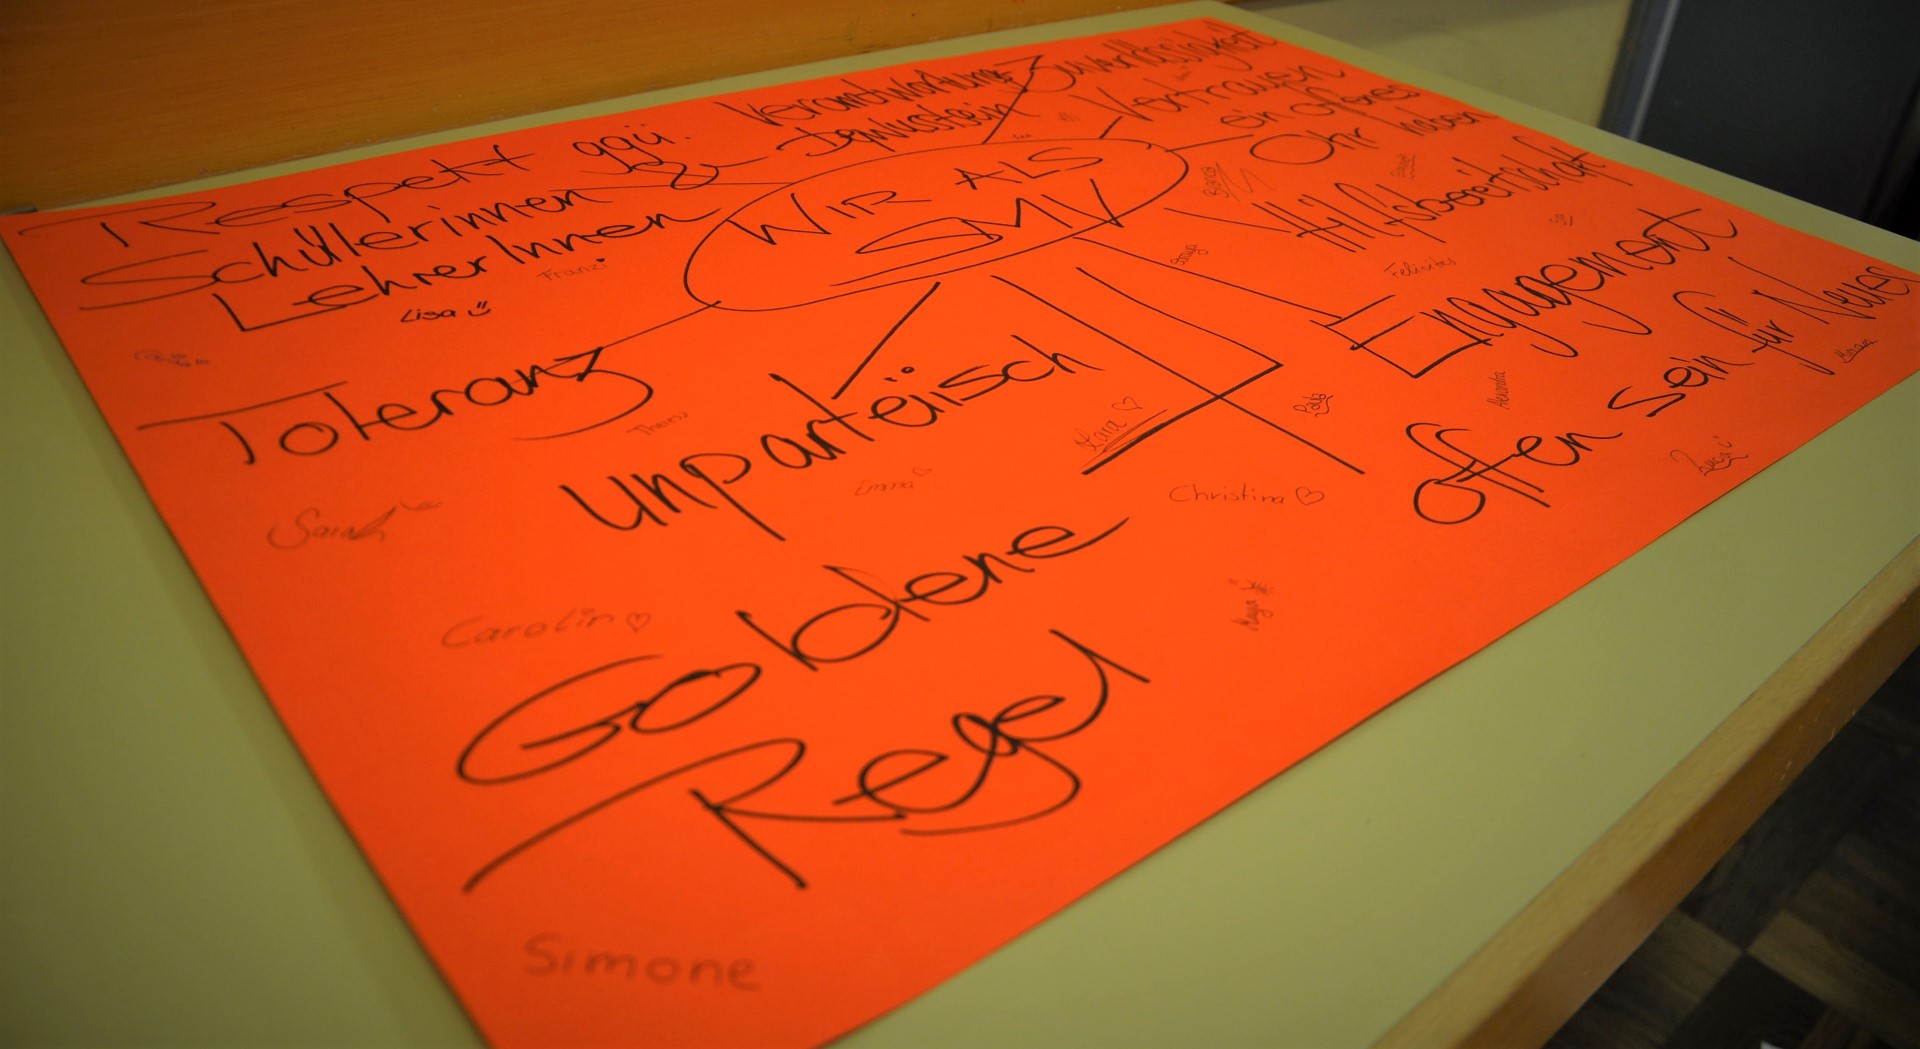 Respekt ggü.
Schüllerinnen &
LehrerInnen
Verantwortungs-
bewusstsein
Zuverlässigkeit
Vertrauen
ein offenes
Ohr haben
WIR ALS
SMV
Hilfsbereitschaft
Engagement
offen sein für Neues
Toleranz
unparteiisch
Goldene
Regel
Franzi
Lisa
Felicitas
Theresa
Lara ♡
Alexandra
Emma ♡
Christina ♡
Sarah
Carolin ♡
Maya
Simone